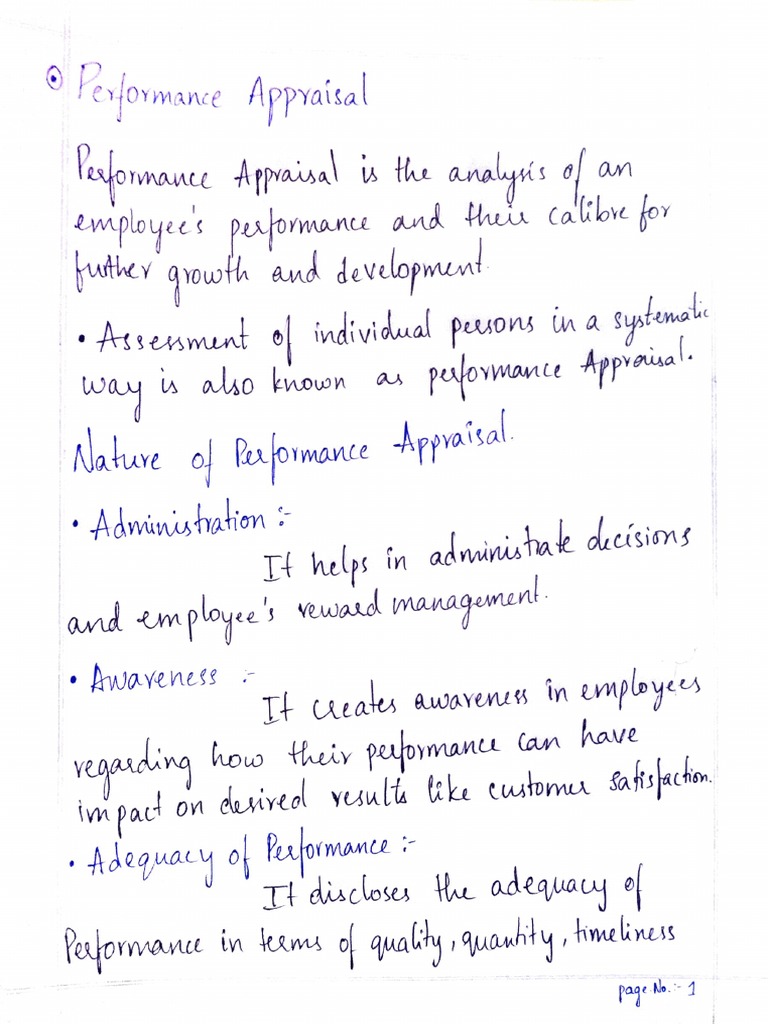 Performance Appraisal
Performance Appraisal is the analysis of an
employee's performance and their calibre for
further growth and development.
• Assessment of individual persons in a systematic
way is also known as performance Appraisal.
Nature of Performance Appraisal.
• Administration :-
It helps in administrate decisions
and employee's reward management.
• Awareness :-
It creates awareness in employees
regarding how their performance can have
impact on desired results like customer satisfaction.
• Adequacy of Performance :-
It discloses the adequacy of
Performance in terms of quality, quantity, timeliness
page No. :- 1